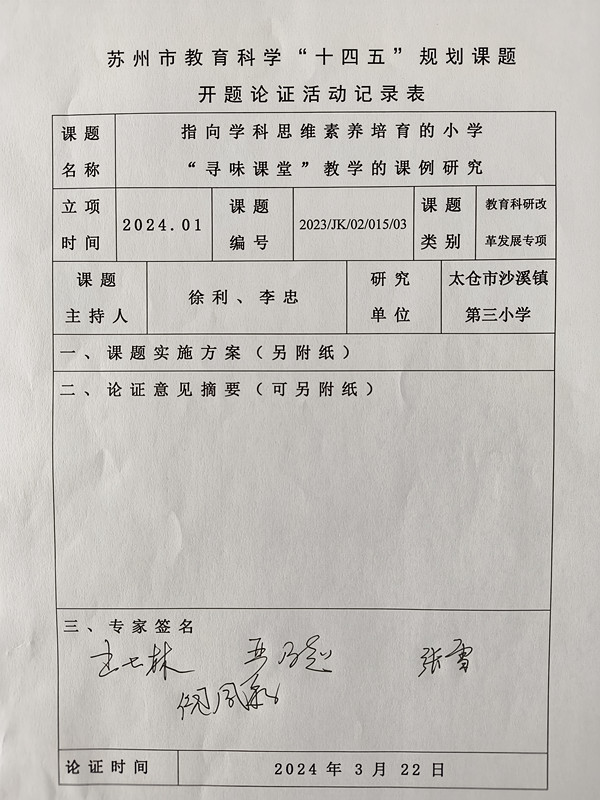 苏州市教育科学“十四五”规划课题
开题论证活动记录表
课题名称
指向学科思维素养培育的小学
“寻味课堂”教学的课例研究
立项时间
2024.01
课题编号
2023/JK/02/015/03
课题类别
教育科研改
革发展专项
课题主持人
徐利、李忠
研究单位
太仓市沙溪镇
第三小学
一、课题实施方案(另附纸)
二、论证意见摘要(可另附纸)
三、专家签名
张雪
论证时间
2024 年 3 月 22 日